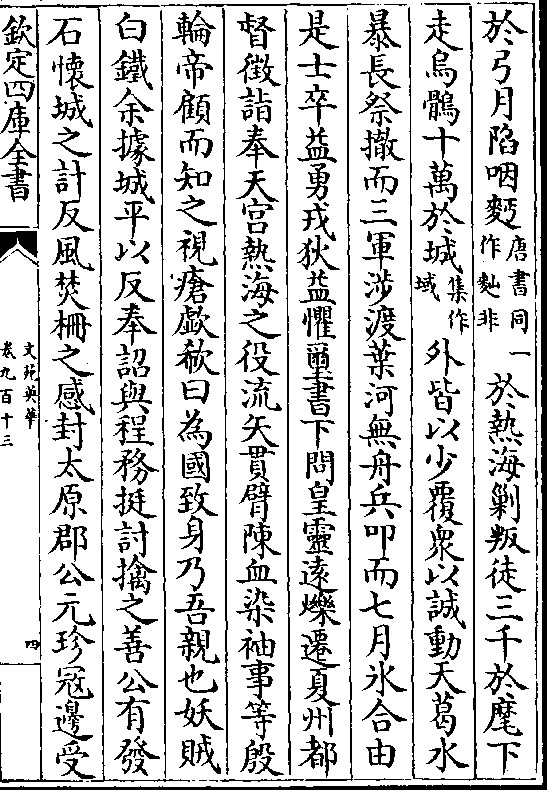 於弓月陷咽麪唐書同作𪌘非一於熱海剿叛徒三千於麾下
走烏鶻十萬於城集作域外皆以少覆衆以誠動天葛水
暴長祭撤而三軍涉渡葉河無舟兵叩而七月氷合由
是士卒益勇戎狄益懼璽書下問皇靈遠爍遷夏州都
督徴詣奉天宫熱海之役流矢貫臂陳血染袖事等殷
輪帝顧而知之視瘡歔欷曰為國致身乃吾親也妖賊
白鐵余據城平以反奉詔與程務挺討擒之善公有發
石懷城之計反風焚柵之感封太原郡公元珍冦邊受
欽定四庫全書
文苑英華
卷九百十三
四